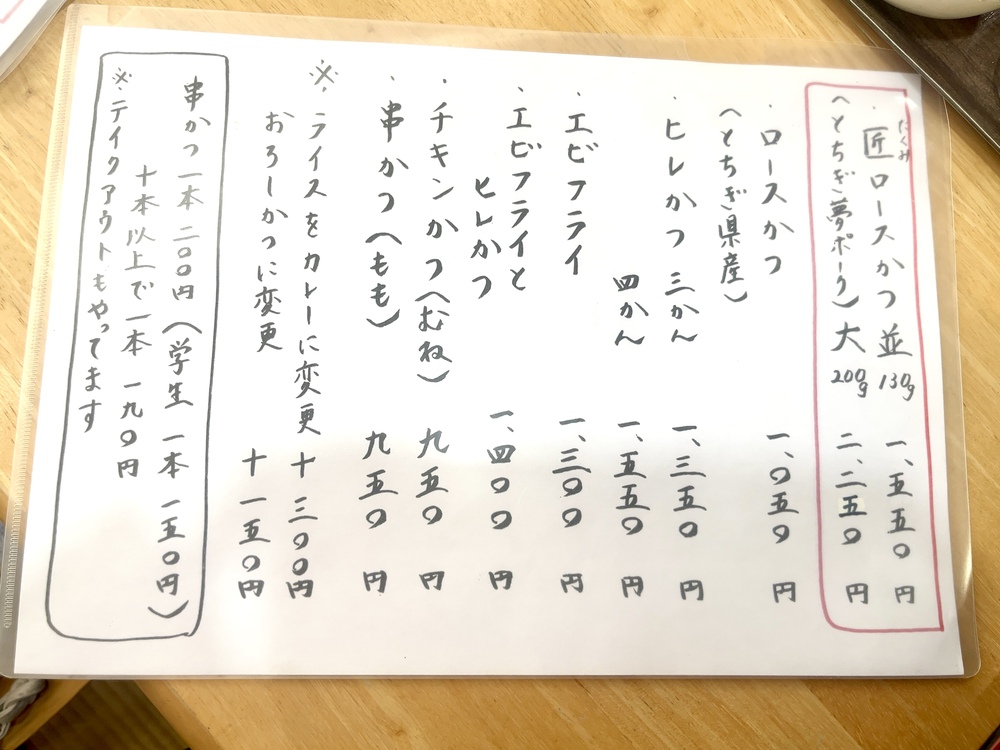 ・匠ロースかつ 並 130g 一、五五〇円
たくみ
(とちぎ夢ポーク) 大 200g 二、二五〇円
・ロースかつ 一、〇五〇円
(とちぎ県産)
・ヒレかつ 三かん 一、三五〇円
四かん 一、五五〇円
・エビフライ 一、三〇〇円
・エビフライと
ヒレかつ 一、四〇〇円
・チキンかつ(むね) 九五〇円
・串かつ(もも) 九五〇円
※ライスをカレーに変更 十三〇〇円
おろしかつに変更 十一五〇円
串かつ一本二〇〇円(学生一本一五〇円)
十本以上で一本一九〇円
※テイクアウトもやってます